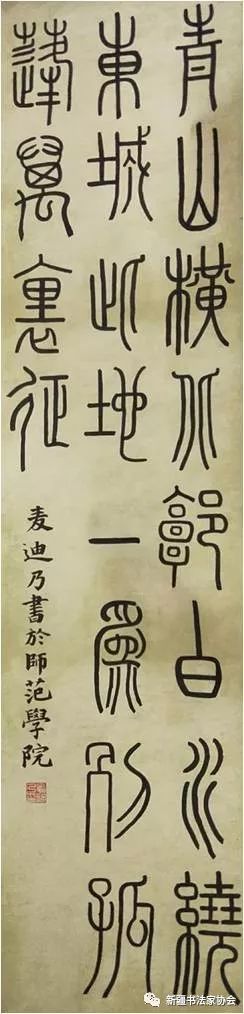 青山橫北郭白水繞
東城此地一爲別孤
蓬萬裏征
麦迪乃書於師范學院
新疆书法家协会